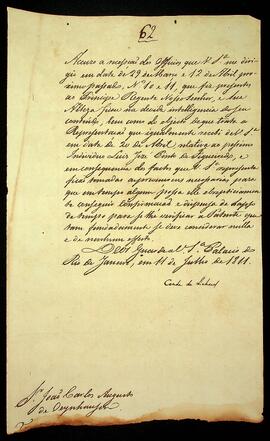 62
Accuso a recepção dos Officios que V. S.ª me diri-
gio em data de 29 de Março e 12 de Abril
proximo passado, N.º 10 e 11, que fiz presentes
ao Principe Regente Nosso Senhor, e Sua
Alteza ficou na devida intelligencia do seu
contheudo, bem como do objecto de que trata a
Representação que igualmente recebi de V. S.ª
em data de 20 de Abril relativa ao pessimo
Individuo Luiz José Pinto de Siqueira, e
em consequencia dos factos que V. S.ª
ficão tomadas as precauções necessarias, para
que em tempo algum possa elle obrepticiamente
conseguir confirmação e dispensa do lapso
de tempo para se lhe verificar a Patente que
tam fundadamente se deve considerar nulla
e de nenhum effeito.
Deos Guarde a V. S.ª Palacio do
Rio de Janeiro em 11 de Julho de 1811.
Conde de Linhares
S.r João Carlos Augusto
de Oeynhausen